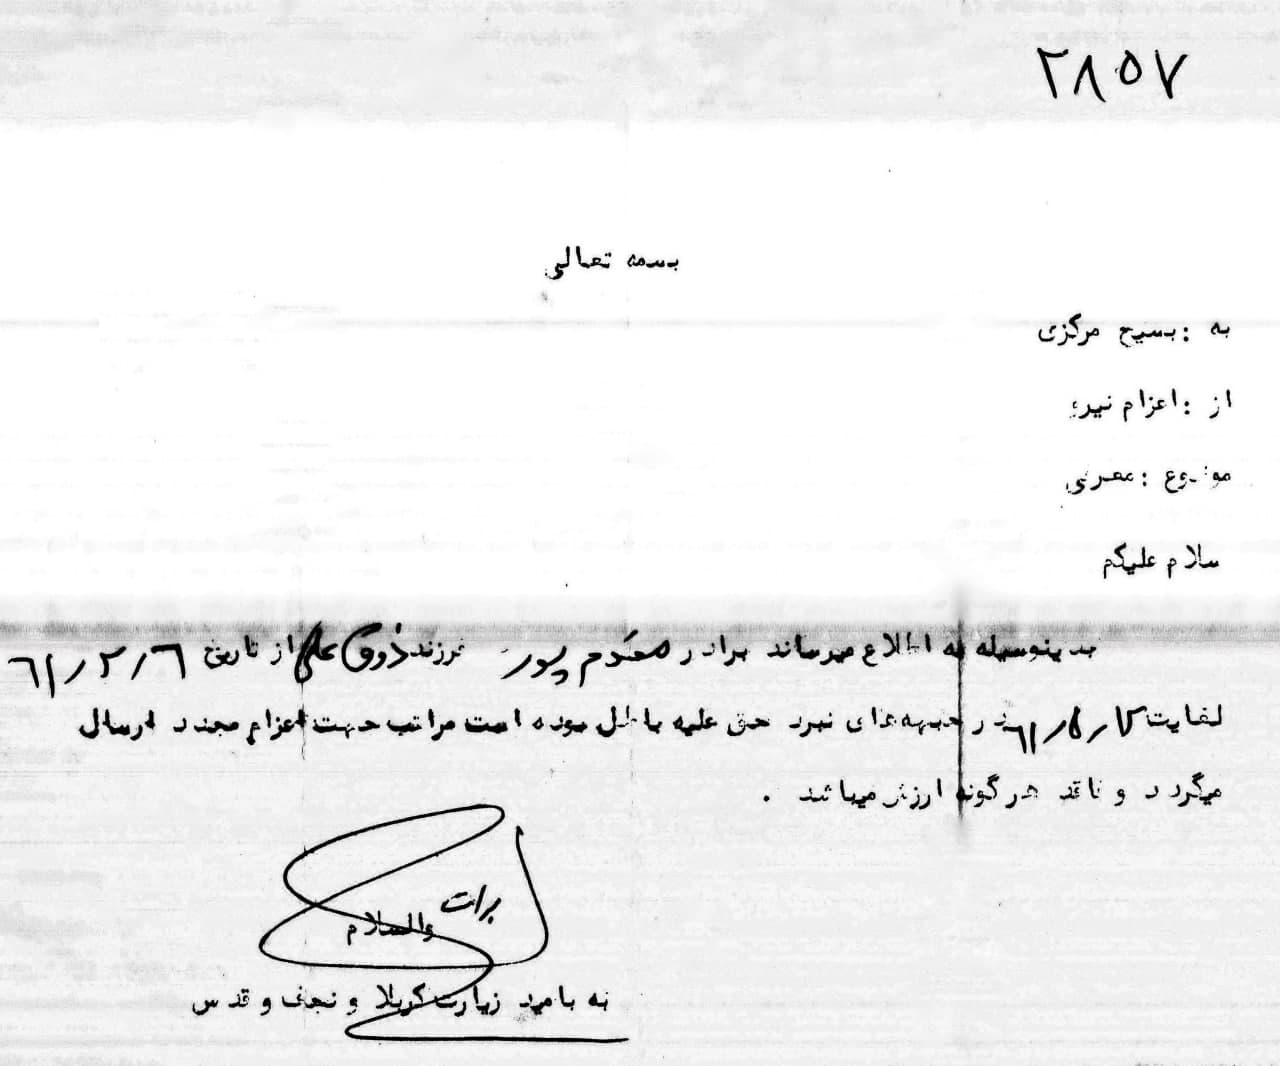 ۲۸۵۷
بسمه تعالی
به : بسیج مرکزی
از : اعزام نیرو
موضوع : معرفی
سلام علیکم
بدینوسیله به اطلاع میرساند برادر محترم پور فرزند ذوق علی از تاریخ ۶۱/۲/۶
لغایت ۶۱/۵/ در جبهه‌های نبرد حق علیه باطل بوده است مراتب جهت اعزام مجدد ارسال
میگردد و فاقد هرگونه ارزش میباشد .
برات
والسلام
به بامید زیارت کربلا و نجف و قدس